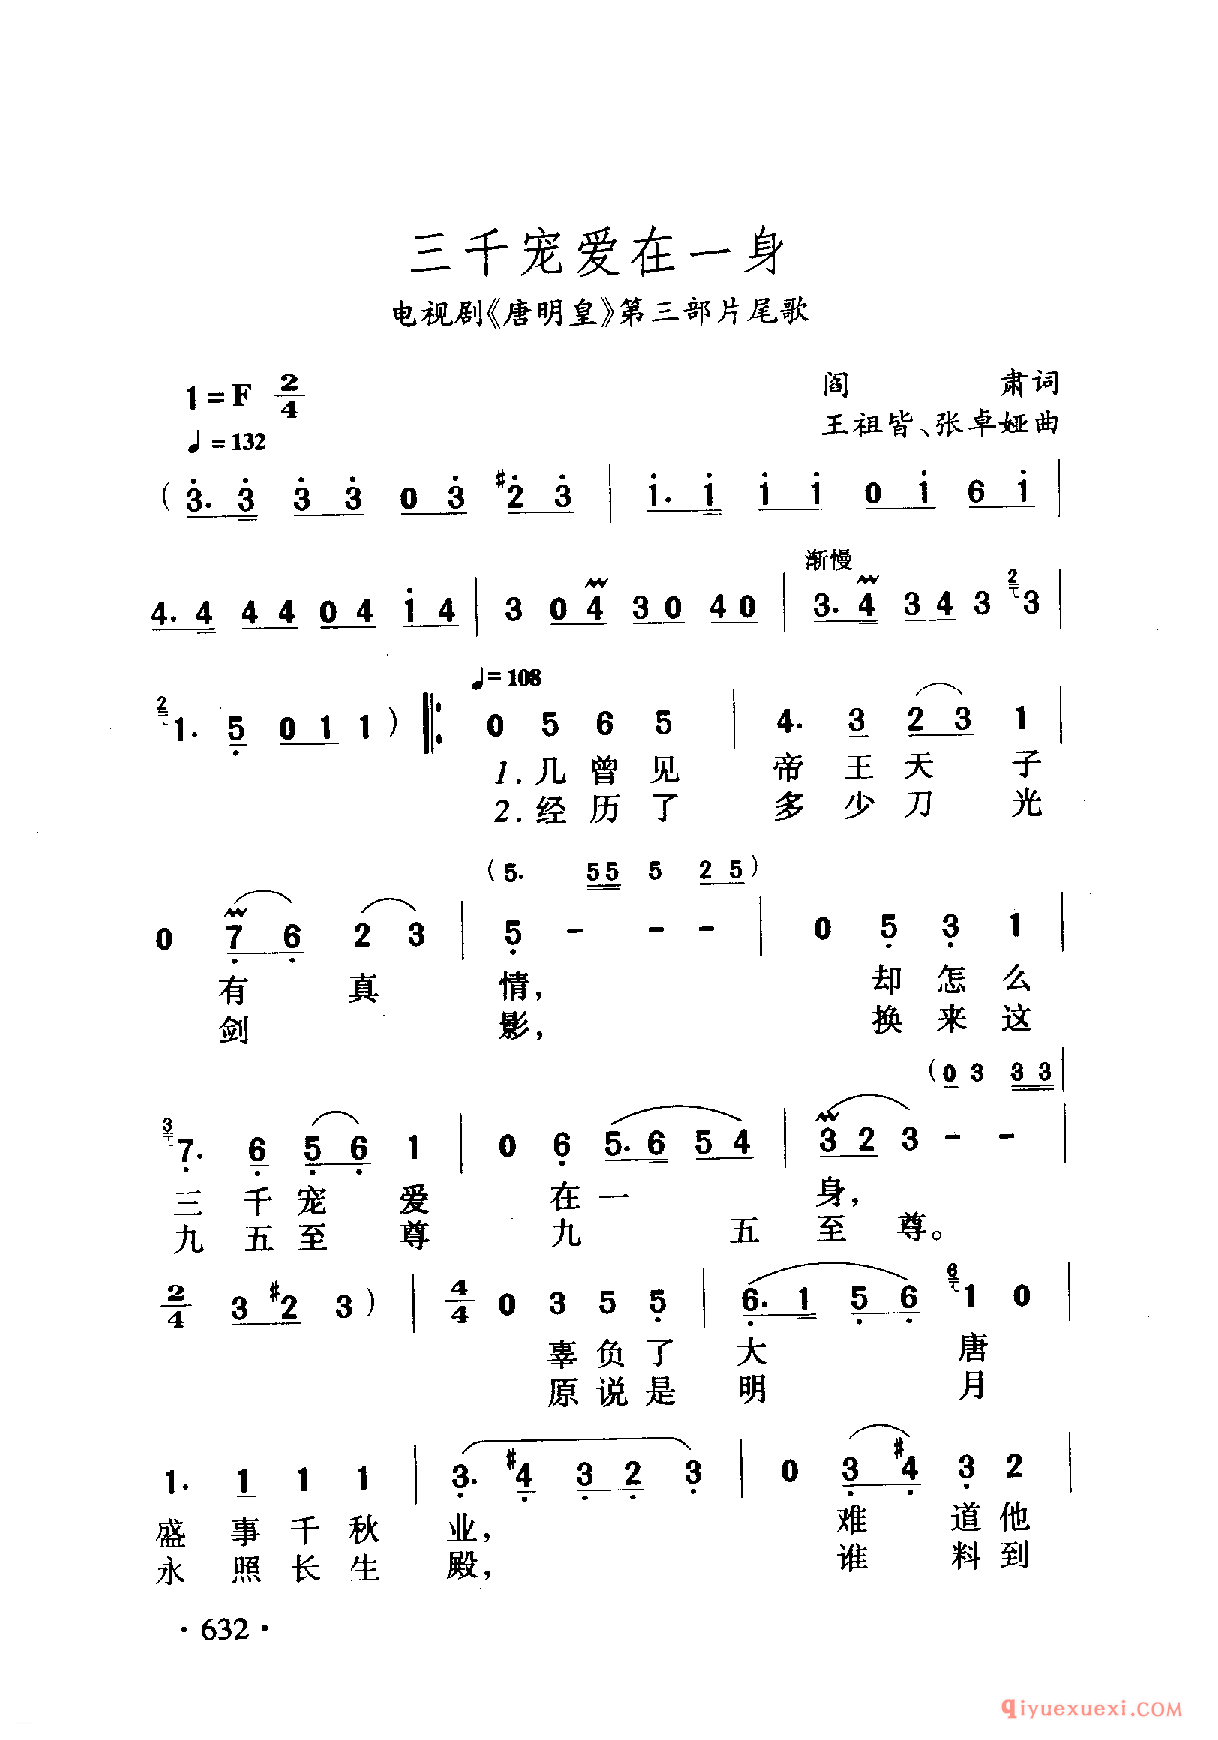 三千宠爱在一身
电视剧《唐明皇》第三部片尾歌
1=F 2/4
阎 肃词
♩=132
王祖皆、张卓娅曲
(3. 3 3 3 0 3 #2 3 | 1. 1 1 1 0 1 6 1 |
渐慢
4. 4 4 4 0 4 1 4 | 3 0 4 3 0 4 0 | 3. 4 3 4 3 2 3 |
♩=108
2 1. 5 0 1 1 ) ‖: 0 5 6 5 | 4. 3 2 3 1 |
1.几曾见 帝王天子
2.经历了 多少刀光
(5. 5 5 5 2 5)
0 7 6 2 3 | 5 - - - | 0 5 3 1 |
有 真 情, 却怎么
剑 影, 换来这
(0 3 3 3
3 7. 6 5 6 1 | 0 6 5. 6 5 4 | 3 2 3 - - |
三千宠爱 在一 身,
九五至尊 九 五至尊。
2/4 3 #2 3 ) | 4/4 0 3 5 5 | 6. 1 5 6 6 1 0 |
辜负了 大 唐
原说是 明 月
1. 1 1 1 | 3. #4 3 2 3 | 0 3 #4 3 2 |
盛事千秋 业, 难 道他
永照长生 殿, 谁 料到
· 632 ·
qiyuexuexi.COM